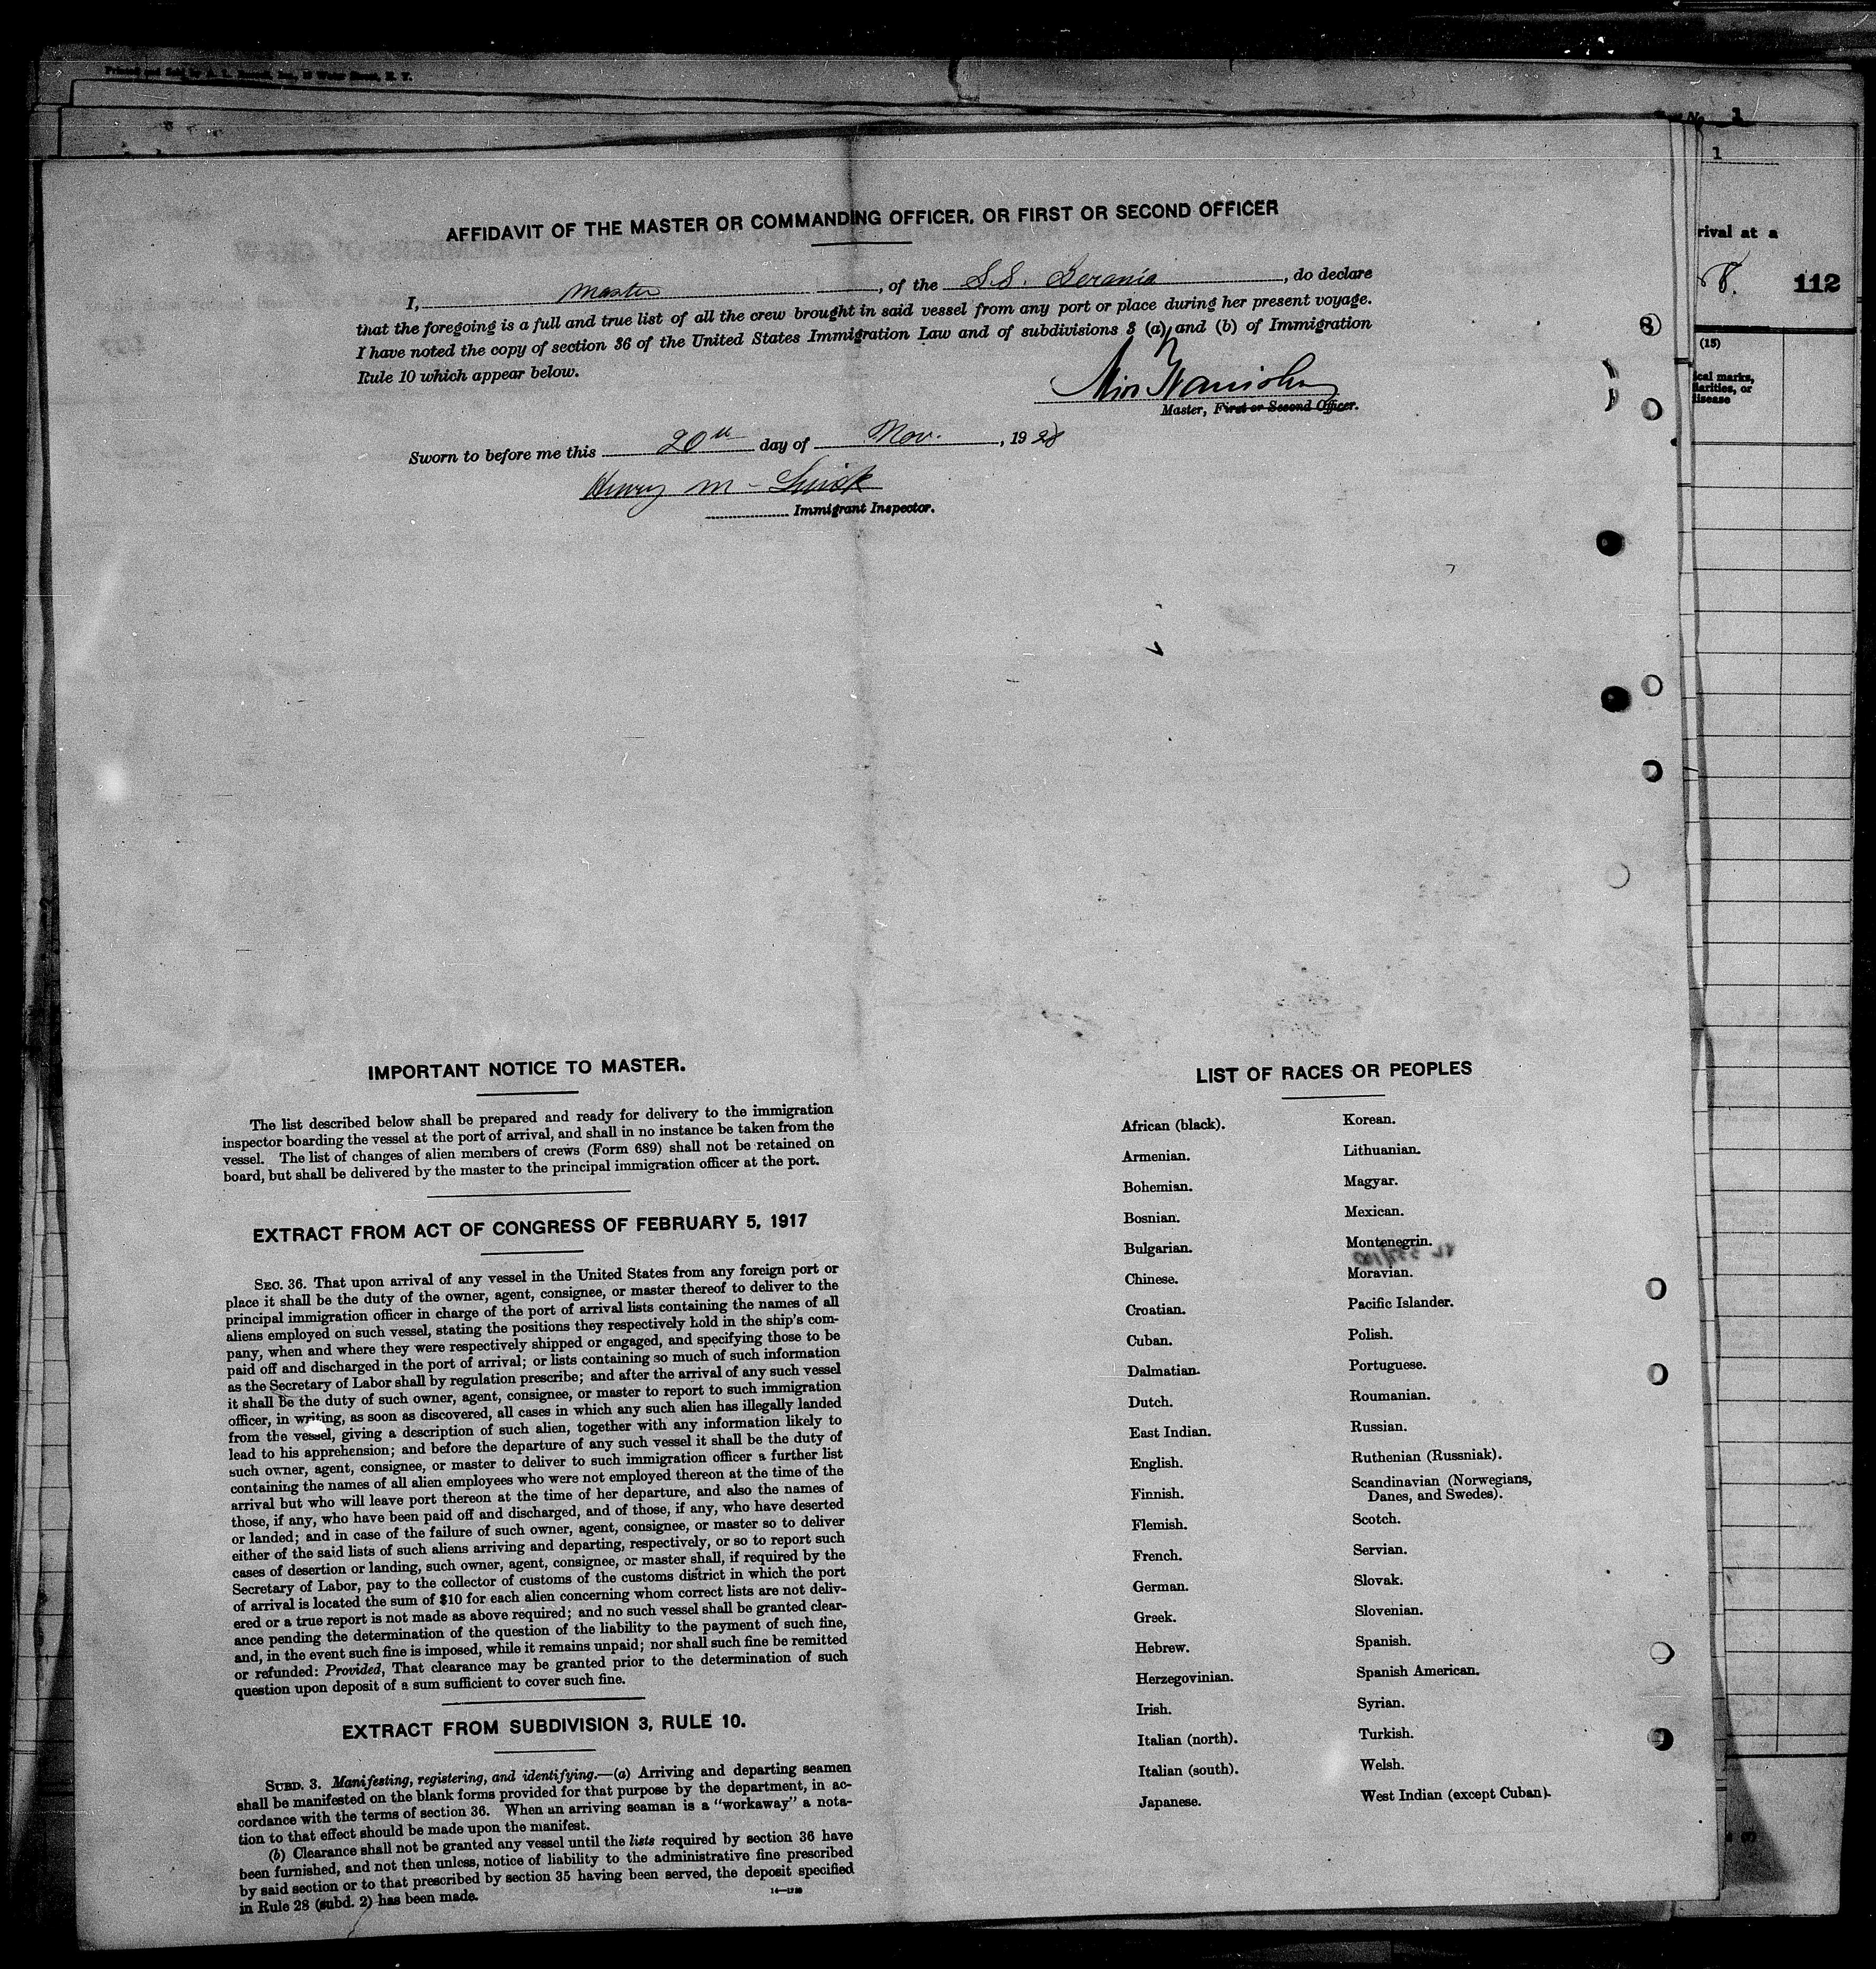 Printed and Sold by
Water Street, N. Y.
1
1
rival at a
8. 112
(15)
ical marks,
liarities, or
disease
AFFIDAVIT OF THE MASTER OR COMMANDING OFFICER, OR FIRST OR SECOND OFFICER
I, Master, of the S.S. Gerania, do declare
that the foregoing is a full and true list of all the crew brought in said vessel from any port or place during her present voyage.
I have noted the copy of section 36 of the United States Immigration Law and of subdivisions 3 (a) and (b) of Immigration
Rule 10 which appear below.
Master, First or Second Officer.
Sworn to before me this 20th day of Nov., 1928
Henry M
Immigrant Inspector.
IMPORTANT NOTICE TO MASTER.
The list described below shall be prepared and ready for delivery to the immigration
inspector boarding the vessel at the port of arrival, and shall in no instance be taken from the
vessel. The list of changes of alien members of crews (Form 689) shall not be retained on
board, but shall be delivered by the master to the principal immigration officer at the port.
EXTRACT FROM ACT OF CONGRESS OF FEBRUARY 5, 1917
SEC. 36. That upon arrival of any vessel in the United States from any foreign port or
place it shall be the duty of the owner, agent, consignee, or master thereof to deliver to the
principal immigration officer in charge of the port of arrival lists containing the names of all
aliens employed on such vessel, stating the positions they respectively hold in the ship's com-
pany, when and where they were respectively shipped or engaged, and specifying those to be
paid off and discharged in the port of arrival; or lists containing so much of such information
as the Secretary of Labor shall by regulation prescribe; and after the arrival of any such vessel
it shall be the duty of such owner, agent, consignee, or master to report to such immigration
officer, in writing, as soon as discovered, all cases in which any such alien has illegally landed
from the vessel, giving a description of such alien, together with any information likely to
lead to his apprehension; and before the departure of any such vessel it shall be the duty of
such owner, agent, consignee, or master to deliver to such immigration officer a further list
containing the names of all alien employees who were not employed thereon at the time of the
arrival but who will leave port thereon at the time of her departure, and also the names of
those, if any, who have been paid off and discharged, and of those, if any, who have deserted
or landed; and in case of the failure of such owner, agent, consignee, or master so to deliver
either of the said lists of such aliens arriving and departing, respectively, or so to report such
cases of desertion or landing, such owner, agent, consignee, or master shall, if required by the
Secretary of Labor, pay to the collector of customs of the customs district in which the port
of arrival is located the sum of $10 for each alien concerning whom correct lists are not deliv-
ered or a true report is not made as above required; and no such vessel shall be granted clear-
ance pending the determination of the question of the liability to the payment of such fine,
and, in the event such fine is imposed, while it remains unpaid; nor shall such fine be remitted
or refunded: Provided, That clearance may be granted prior to the determination of such
question upon deposit of a sum sufficient to cover such fine.
EXTRACT FROM SUBDIVISION 3, RULE 10.
SUBD. 3. Manifesting, registering, and identifying.—(a) Arriving and departing seamen
shall be manifested on the blank forms provided for that purpose by the department, in ac-
cordance with the terms of section 36. When an arriving seaman is a "workaway" a nota-
tion to that effect should be made upon the manifest.
(b) Clearance shall not be granted any vessel until the lists required by section 36 have
been furnished, and not then unless, notice of liability to the administrative fine prescribed
by said section or to that prescribed by section 35 having been served, the deposit specified
in Rule 28 (subd. 2) has been made.
LIST OF RACES OR PEOPLES
African (black).
Armenian.
Bohemian.
Bosnian.
Bulgarian.
Chinese.
Croatian.
Cuban.
Dalmatian.
Dutch.
East Indian.
English.
Finnish.
Flemish.
French.
German.
Greek.
Hebrew.
Herzegovinian.
Irish.
Italian (north).
Italian (south).
Japanese.
Korean.
Lithuanian.
Magyar.
Mexican.
Montenegrin.
Moravian.
Pacific Islander.
Polish.
Portuguese.
Roumanian.
Russian.
Ruthenian (Russniak).
Scandinavian (Norwegians,
Danes, and Swedes).
Scotch.
Servian.
Slovak.
Slovenian.
Spanish.
Spanish American.
Syrian.
Turkish.
Welsh.
West Indian (except Cuban).